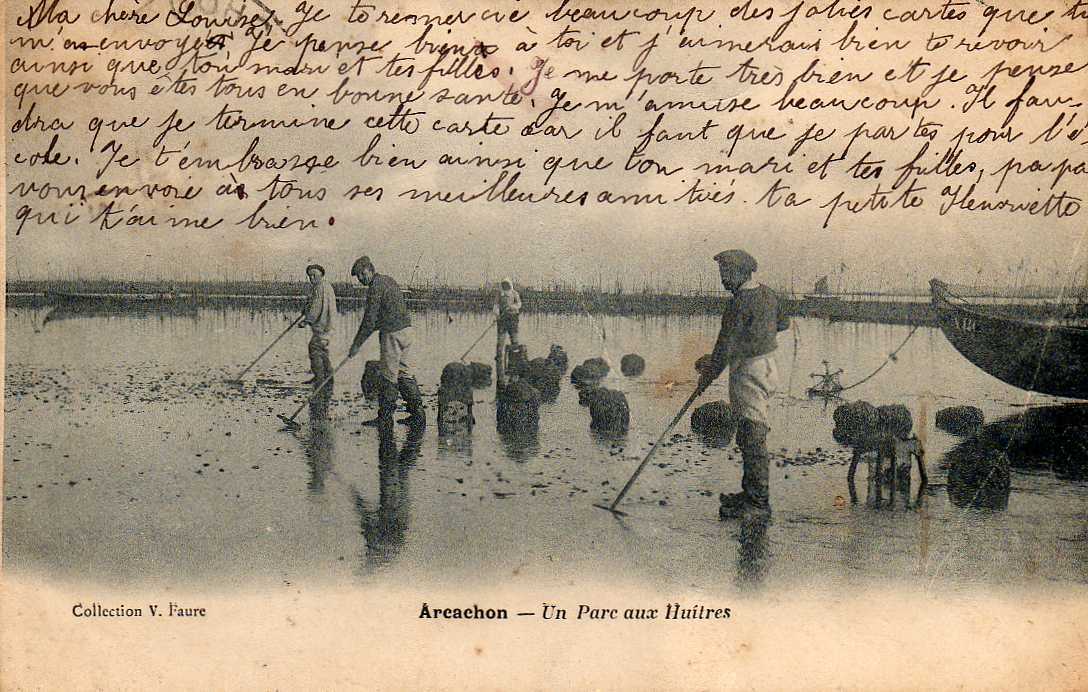 Ma chère Louise, Je te remercie beaucoup des jolies cartes que tu
m'as envoyées Je pense bien à toi et j'aimerais bien te revoir
ainsi que ton mari et tes filles. Je me porte très bien et je pense
que vous êtes tous en bonne santé. Je m'amuse beaucoup. Il fau-
dra que je termine cette carte car il faut que je partes pour l'é-
cole. Je t'embrasse bien ainsi que ton mari et tes filles, papa
vous envoie à tous ses meilleures amitiés. ta petite Henriette
qui t'aime bien.
Collection V. Faure
Arcachon — Un Parc aux Huîtres